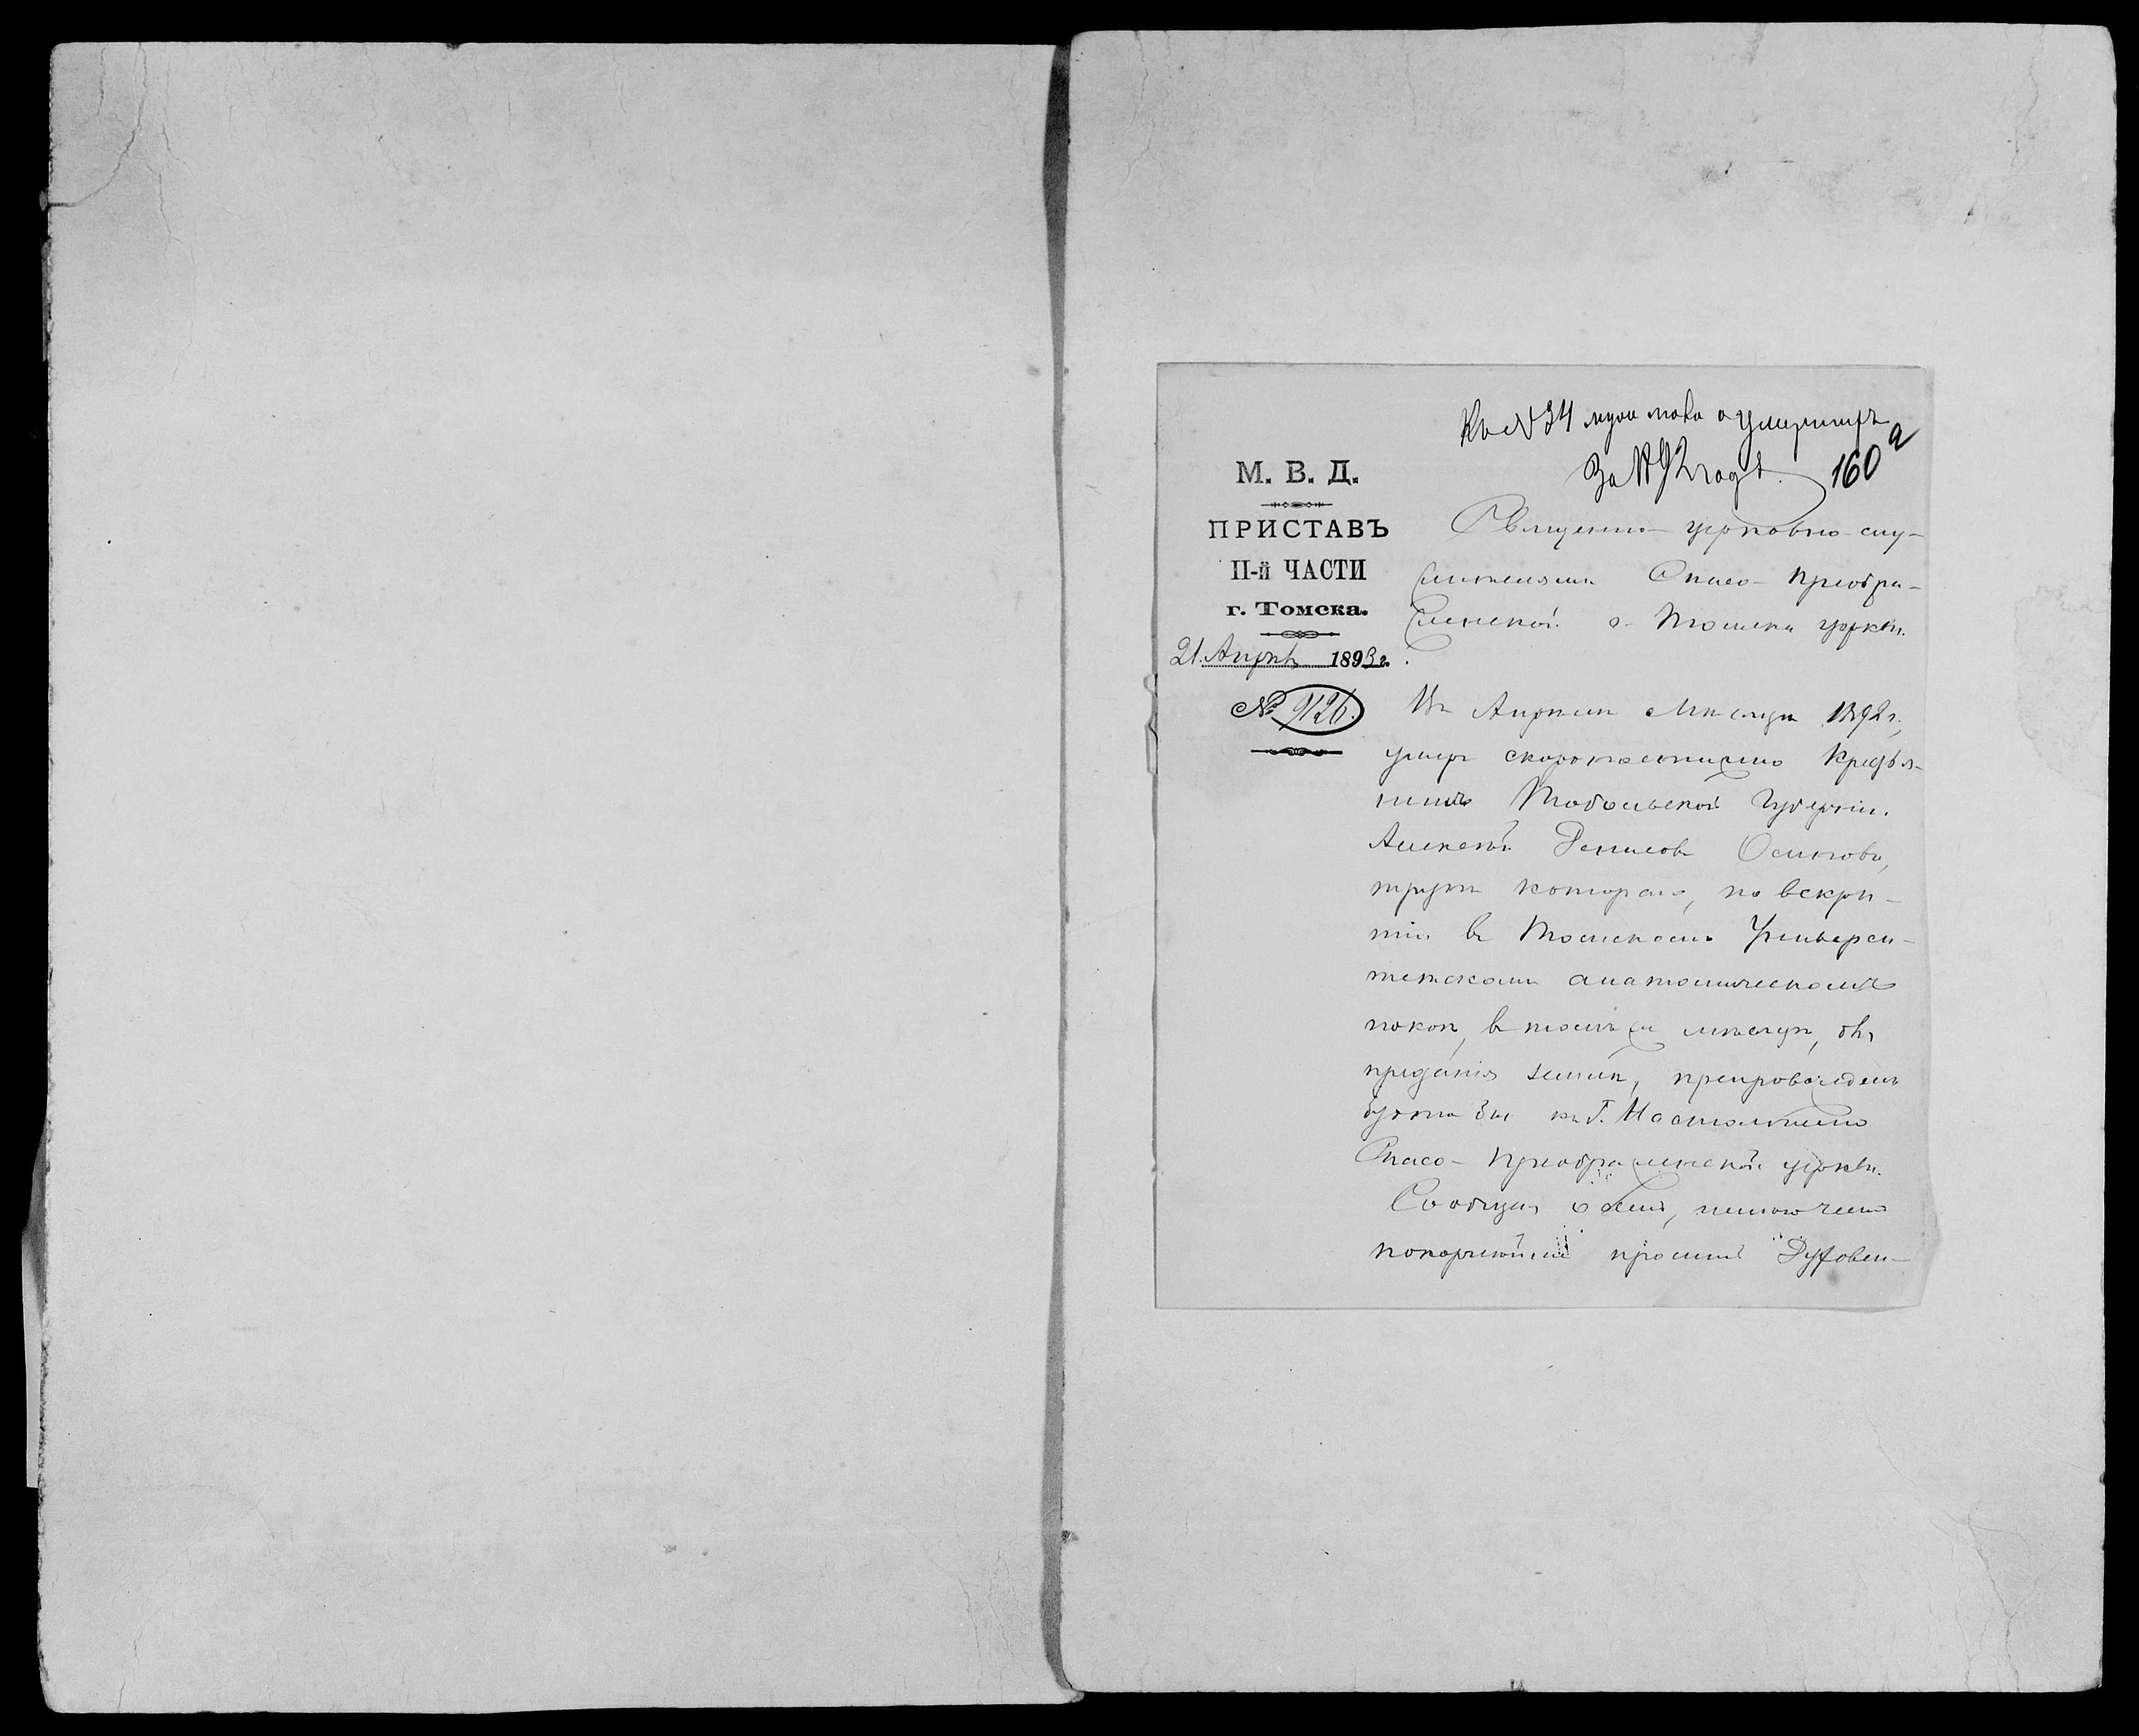 Къ №34 муж. пола о умершихъ
За 1892 годъ. 160 а
М. В. Д.
ПРИСТАВЪ
II-й ЧАСТИ
г. Томска.
21 Апрѣля 1893 г.
№ 9126.
Священно-церковно-слу-
жителямъ Спасо-Преобра-
женской г. Томска церкви.
Въ Апрѣлѣ Мѣсяцѣ 1892 г.,
умеръ скоропостижно Кресть-
янинъ Тобольской Губерніи
Алексѣй Денисовъ Осиповъ,
трупъ котораго, по вскры-
тіи въ Томскомъ Универси-
тетскомъ анатомическомъ
покоѣ, въ томъ же мѣсяцѣ, для
преданія землѣ, препровожденъ
былъ къ Г. Настоятелю
Спасо-Преображенской церкви.
Сообщая о семъ,
покорнѣйше прошу Духовен-